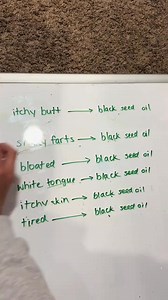 itchy butt → black seed oil
farts → black seed oil
bloated → black seed oil
white tongue → black seed oil
itchy skin → black seed oil
tired → black seed oil